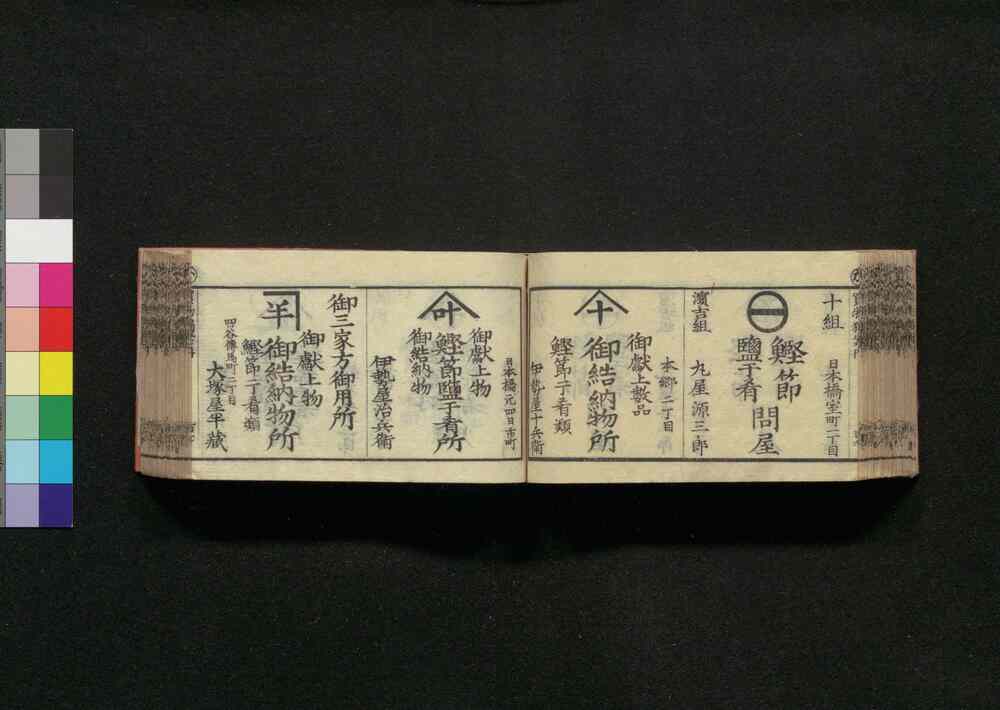 十組
日本橋室町二丁目
鰹節
鹽干肴
問屋
濱吉組
丸屋源三郎
本郷二丁目
十
御獻上數品
御結納物所
鰹節干肴類
伊勢屋十兵衛
日本橋元四日市町
叶
御獻上物
鰹節鹽干肴所
御結納物
伊勢屋治兵衛
御三家方御用所
御獻上物
半
御結納物所
鰹節干肴類
四谷傳馬町二丁目
大塚屋半蔵